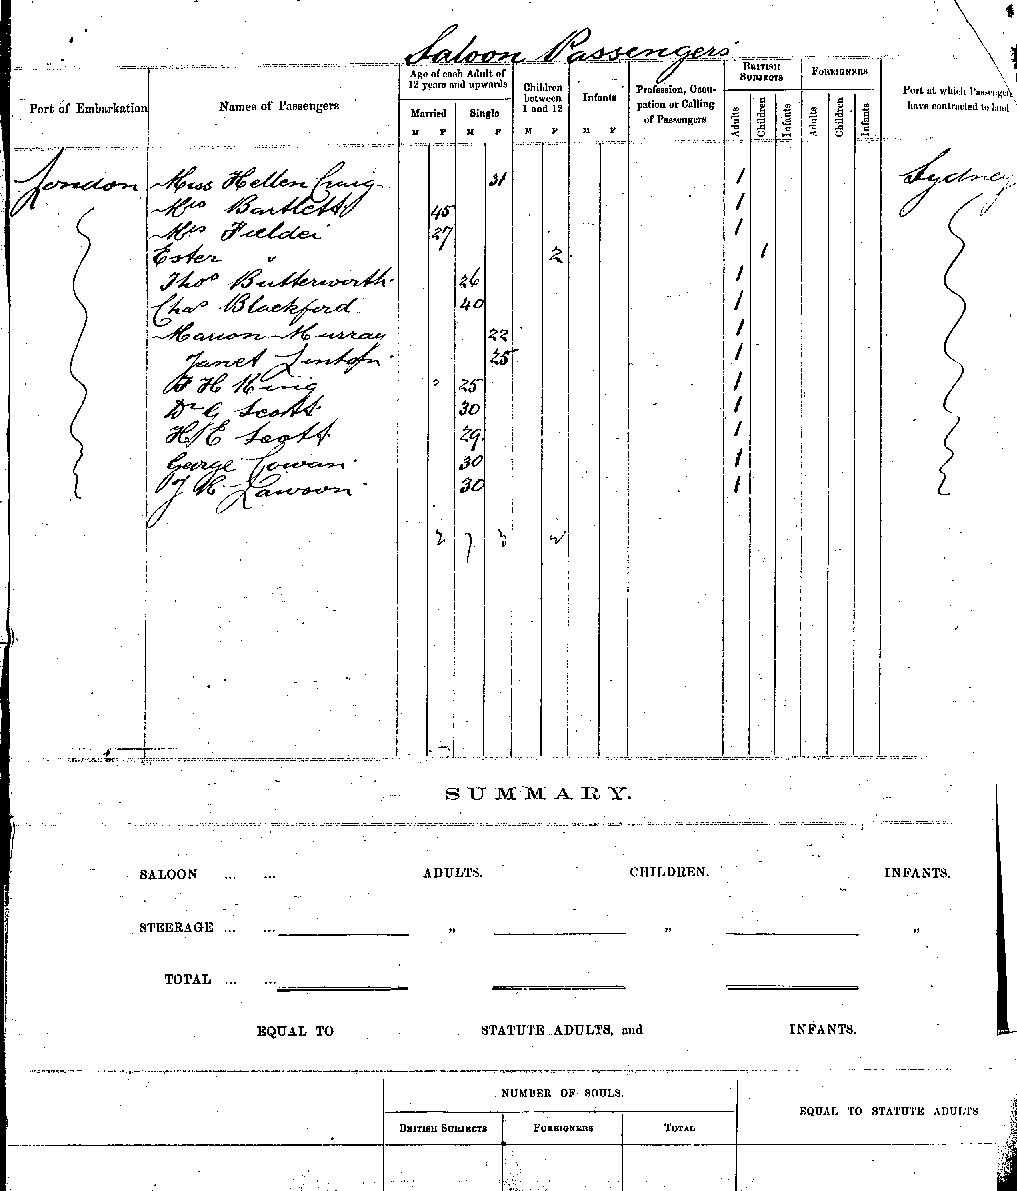 Saloon Passengers
Port of Embarkation Names of Passengers Age of each Adult of 12 years and upwards Children between 1 and 12 Infants Profession, Occupation or Calling of Passengers BRITISH SUBJECTS FOREIGNERS Port at which Passengers have contracted to land
Married Single Adults Children Infants Adults Children Infants
M F M F M F M F
London Miss Hellen Craig 31 1 Sydney
Mrs Bartlett 45 1
Mrs 27 1
Ester " 2 1
Thos Butterworth 26 1
Chas Blackford 40 1
Marion Murray 22 1
Janet Linton 25 1
H King 25 1
Dr G Scott 30 1
H E Scott 29 1
George Cowan 30 1
J R Lawson 30 1
2 7 3
SUMMARY.
SALOON ... ... ADULTS. CHILDREN. INFANTS.
STEERAGE ... ... " " "
TOTAL ... ...
EQUAL TO STATUTE ADULTS, and INFANTS.
NUMBER OF SOULS. EQUAL TO STATUTE ADULTS
BRITISH SUBJECTS FOREIGNERS TOTAL